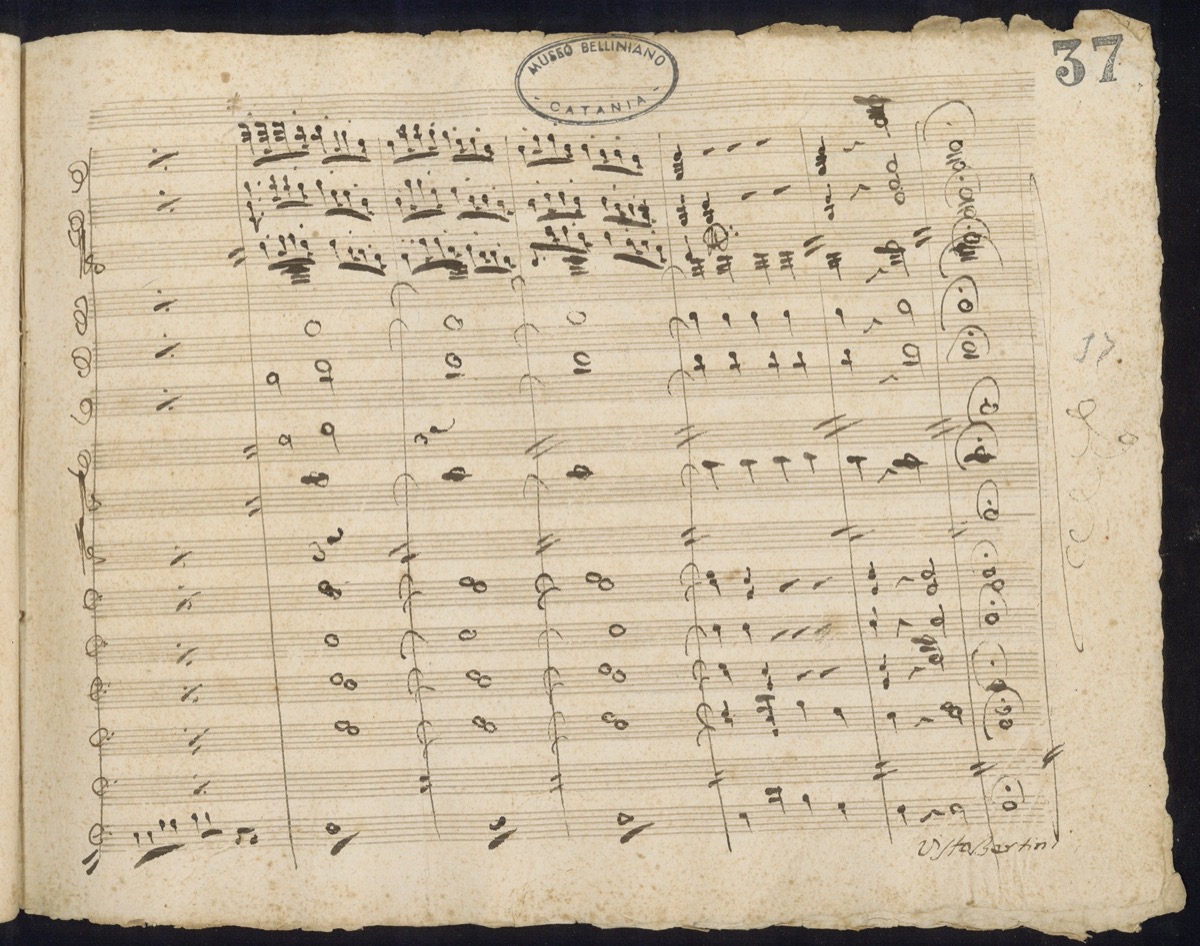 MUSEO BELLINIANO
- CATANIA -
37
37
Visto Bertini